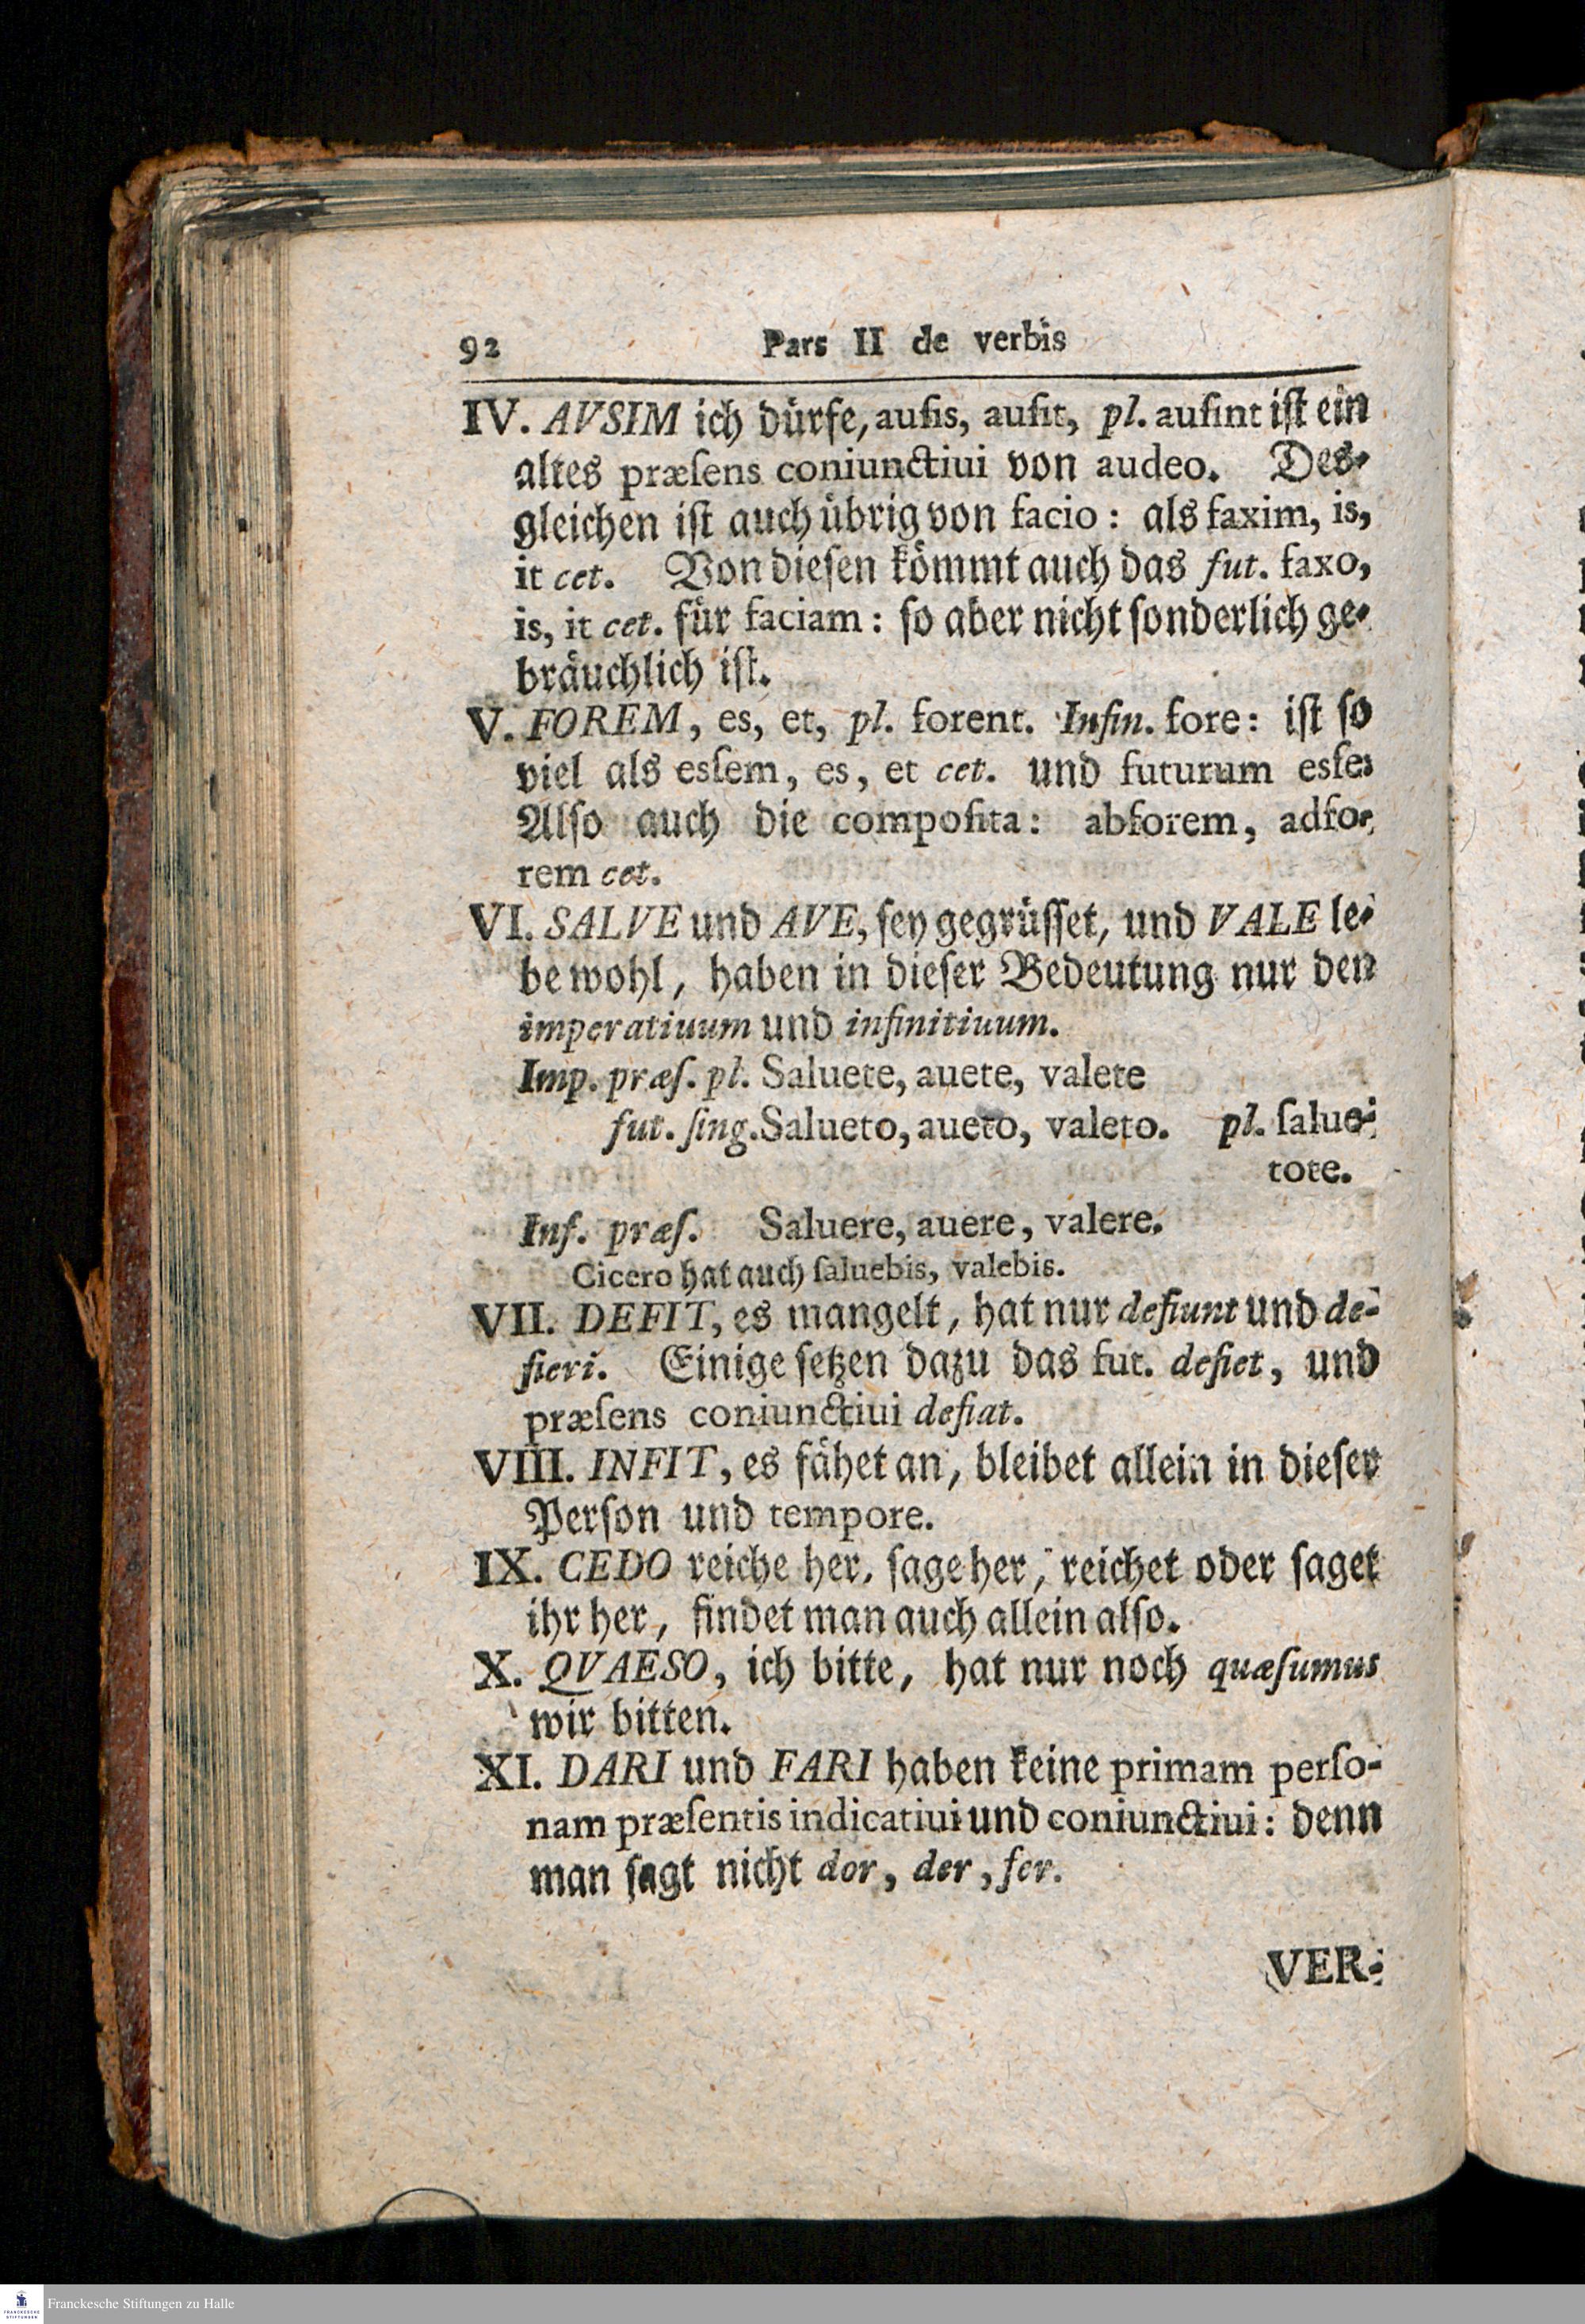 92 Pars II de verbis
IV. AVSIM ich dürfe, auſis, auſit, pl. auſint iſt ein
altes præſens coniunctiui von audeo. Des-
gleichen iſt auch übrig von facio: als faxim, is,
it cet. Von dieſen kömmt auch das fut. faxo,
is, it cet. für faciam: ſo aber nicht ſonderlich ge-
bräuchlich iſt.
V. FOREM, es, et, pl. forent. Infin. fore: iſt ſo
viel als esſem, es, et cet. und futurum esſe:
Alſo auch die compoſita: abforem, adfo-
rem cet.
VI. SALVE und AVE, ſey gegrüſſet, und VALE le-
be wohl, haben in dieſer Bedeutung nur den
imperatiuum und infinitiuum.
Imp. præſ. pl. Saluete, auete, valete
fut. ſing. Salueto, aueto, valeto. pl. ſalue-
tote.
Inf. præſ. Saluere, auere, valere.
Cicero hat auch ſaluebis, valebis.
VII. DEFIT, es mangelt, hat nur defiunt und de-
fieri. Einige ſetzen dazu das fut. defiet, und
præſens coniunctiui defiat.
VIII. INFIT, es fähet an, bleibet allein in dieſer
Perſon und tempore.
IX. CEDO reiche her, ſage her, reichet oder ſaget
ihr her, findet man auch allein alſo.
X. QVAESO, ich bitte, hat nur noch quæſumus
wir bitten.
XI. DARI und FARI haben keine primam perſo-
nam præſentis indicatiui und coniunctiui: denn
man ſagt nicht dor, der, fer.
VER-
Franckesche Stiftungen zu Halle
FRANCKESCHE
STIFTUNGEN